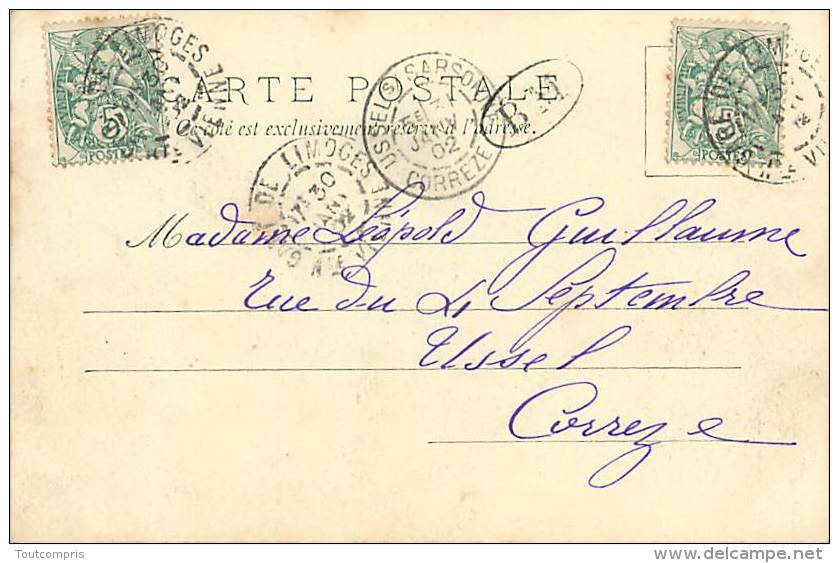 CARTE POSTALE
Ce côté est exclusivement réservé à l'adresse.
LIMOGES
5
POSTES
USSEL
SARSON
CORREZE
JANV
02
B
GARE DE LIMOGES
30
POSTES
Madame Léopold Guillaume
Rue du 4 Septembre
Ussel
Correze
Toutcompris
delcampe.net